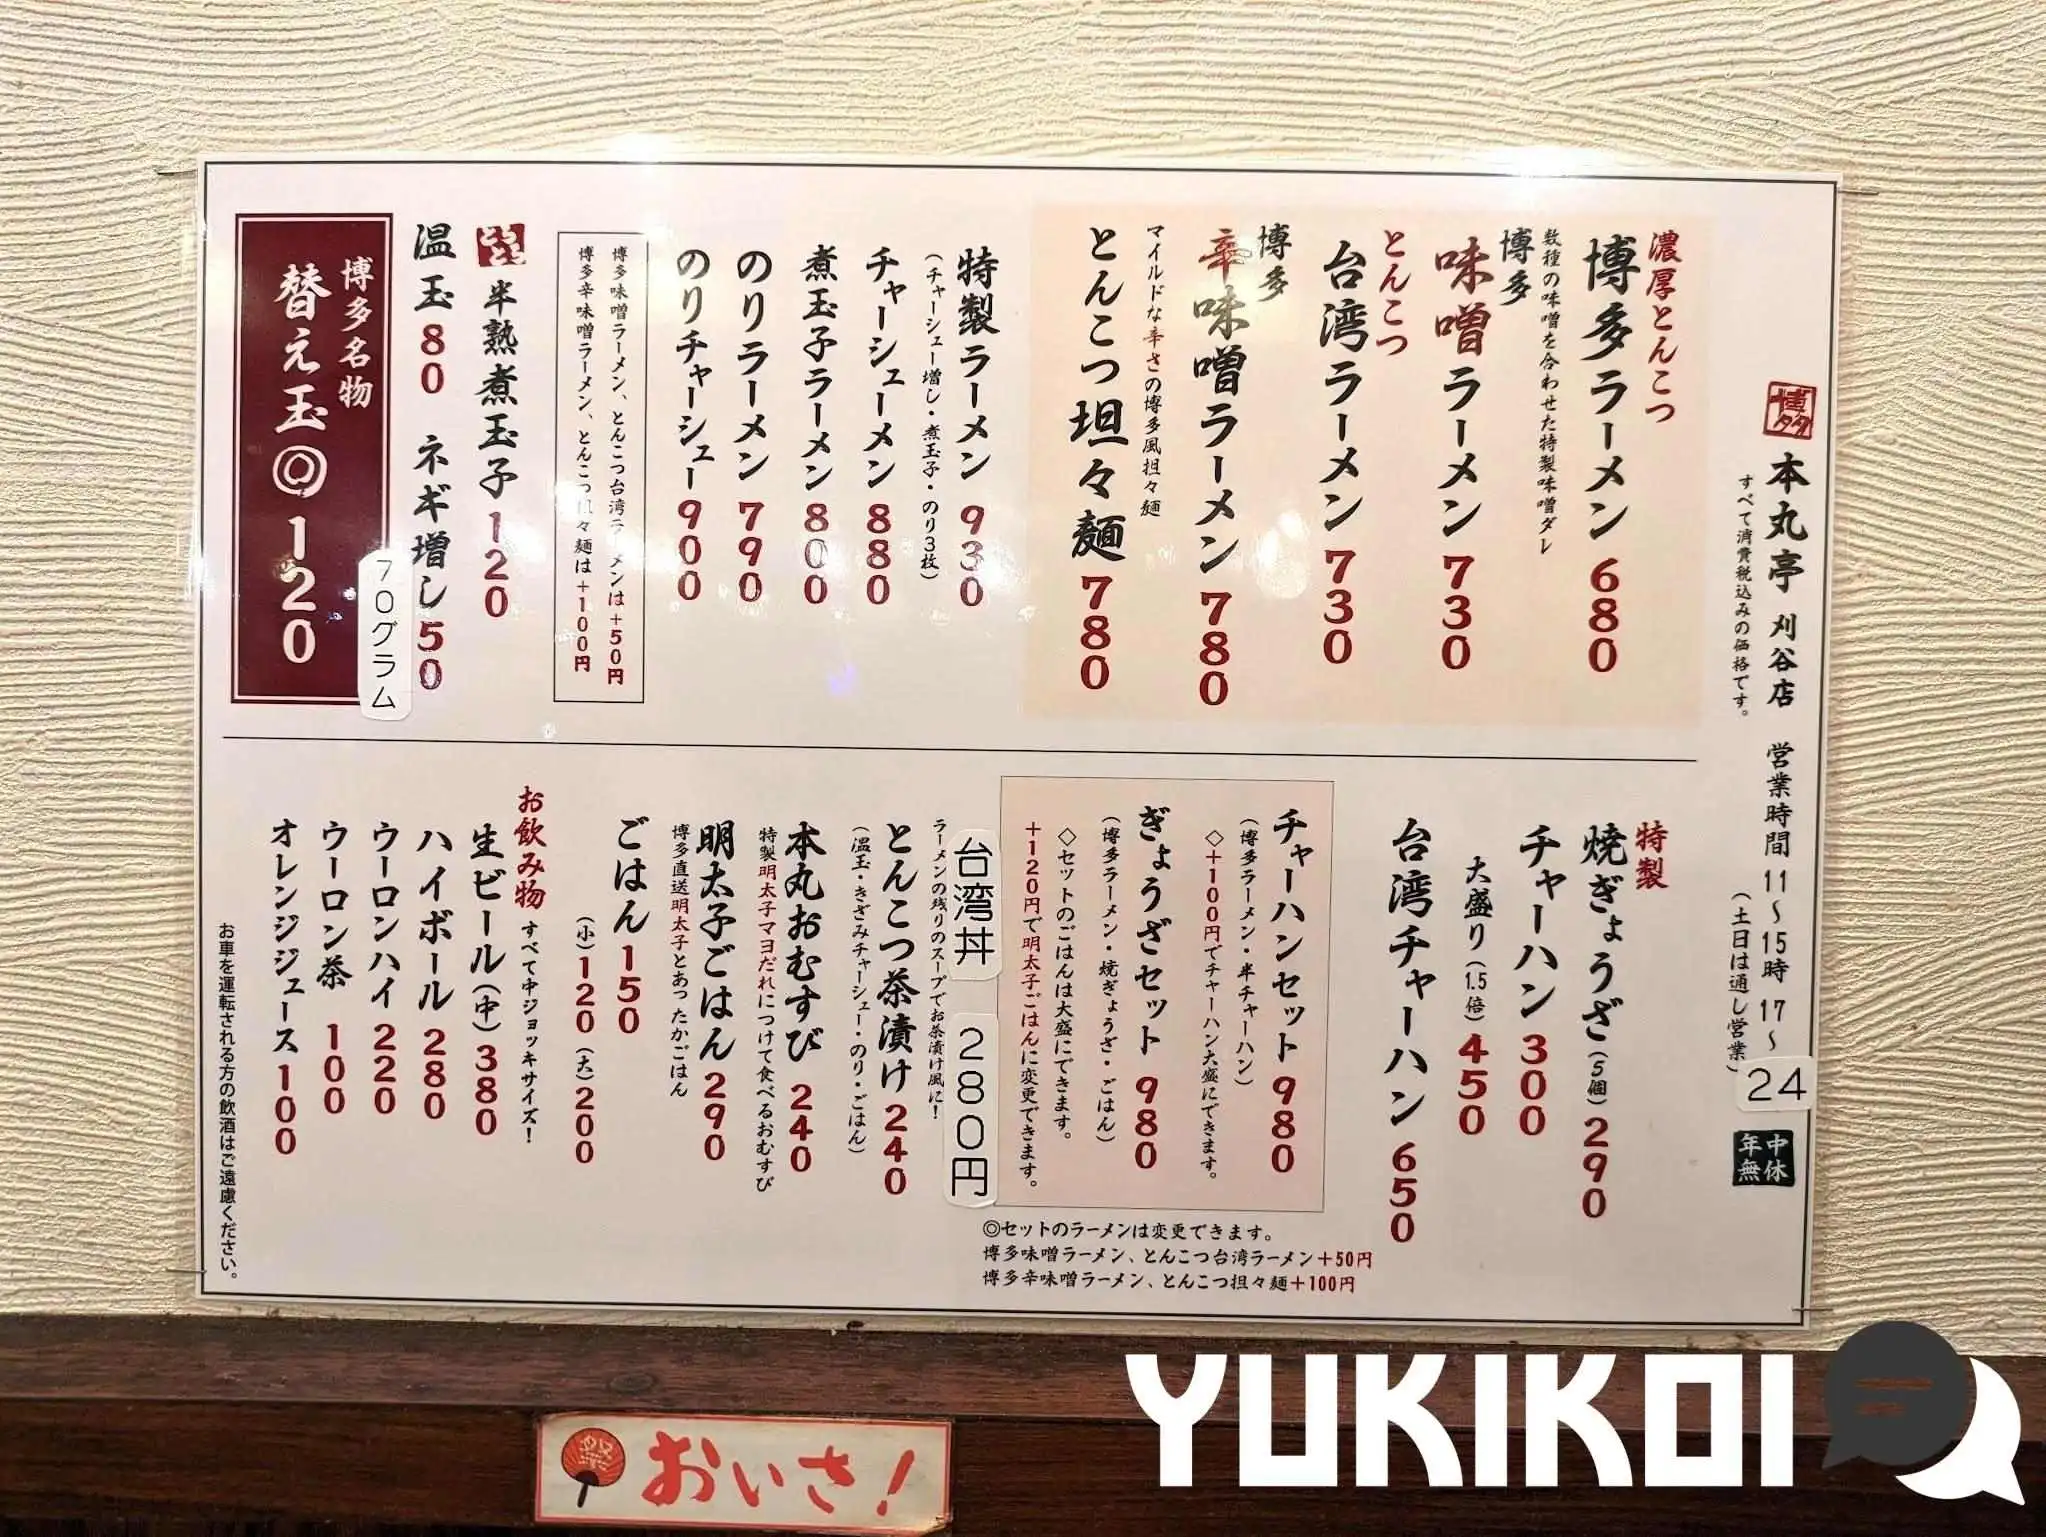 博多
本丸亭 刈谷店
すべて消費税込みの価格です。
営業時間 11～15時 17～24
（土日は通し営業）
年中無休
濃厚とんこつ
博多ラーメン 680
数種の味噌を合わせた特製味噌ダレ
博多
味噌ラーメン 730
とんこつ
台湾ラーメン 730
博多
辛味噌ラーメン 780
マイルドな辛さの博多風担々麺
とんこつ坦々麺 780
特製ラーメン 930
（チャーシュー増し・煮玉子・のり3枚）
チャーシューメン 880
煮玉子ラーメン 800
のりラーメン 790
のりチャーシュー 900
博多味噌ラーメン、とんこつ台湾ラーメンは+50円
博多辛味噌ラーメン、とんこつ担々麺は+100円
とろっとろ
半熟煮玉子 120
温玉 80 ネギ増し 50
70グラム
博多名物
替え玉◎120
特製
焼ぎょうざ（5個）290
チャーハン 300
大盛り（1.5倍）450
台湾チャーハン 650
チャーハンセット 980
（博多ラーメン・半チャーハン）
◇+100円でチャーハン大盛にできます。
ぎょうざセット 980
（博多ラーメン・焼ぎょうざ・ごはん）
◇セットのごはんは大盛にできます。
+120円で明太子ごはんに変更できます。
◎セットのラーメンは変更できます。
博多味噌ラーメン、とんこつ台湾ラーメン+50円
博多辛味噌ラーメン、とんこつ担々麺+100円
台湾丼 280円
ラーメンの残りのスープでお茶漬け風に！
とんこつ茶漬け 240
（温玉・きざみチャーシュー・のり・ごはん）
本丸おむすび 240
特製明太子マヨだれにつけて食べるおむすび
明太子ごはん 290
博多直送明太子とあったかごはん
ごはん 150
（小）120（大）200
お飲み物 すべて中ジョッキサイズ！
生ビール（中）380
ハイボール 280
ウーロンハイ 220
ウーロン茶 100
オレンジジュース 100
お車を運転される方の飲酒はご遠慮ください。
祭
おいさ！
YUKIKOI